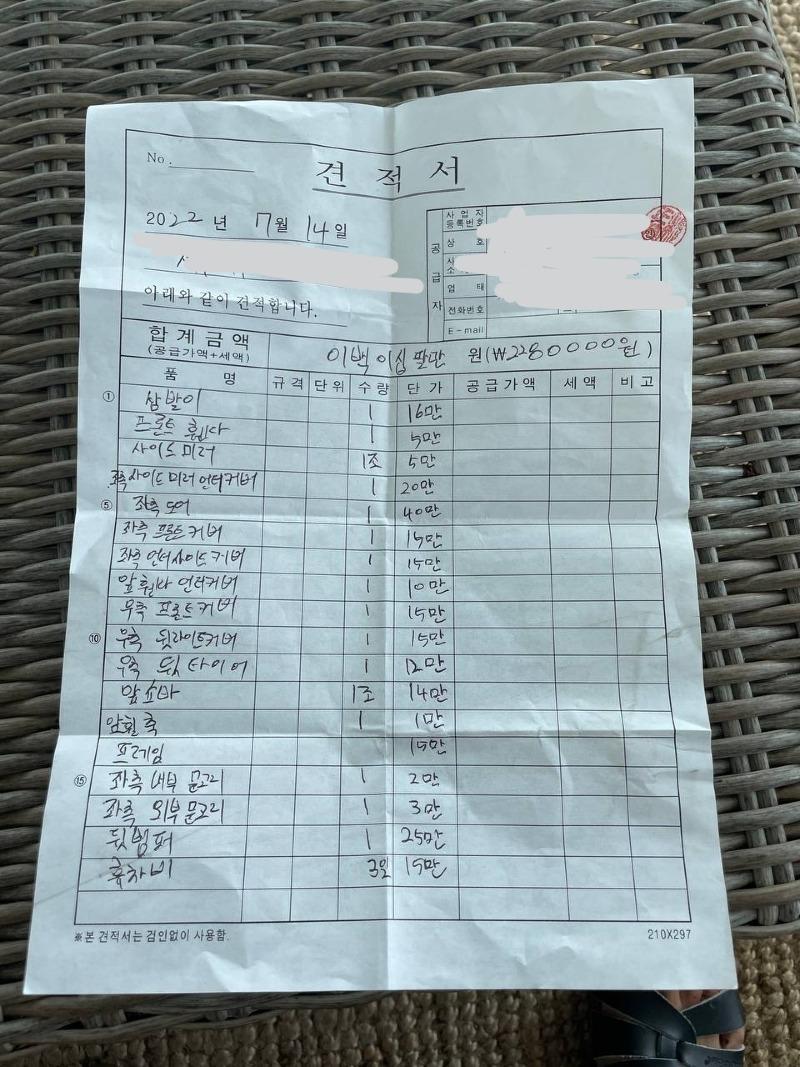 No.
견 적 서
2022 년 7 월 14 일
아래와 같이 견적합니다.
공 급 자
사 업 자 등록번호
상 호
업 태
전화번호
E-mail
합 계 금 액 (공급가액+세액) 이백 이십 팔만 원(₩2280000원)
품 명 규 격 단 위 수 량 단 가 공 급 가 액 세 액 비 고
① 삼발이 1 16만
프론트 휀다 1 5만
사이드 미러 1조 5만
좌측 사이드 미러 언더커버 1 20만
⑤ 좌측 도어 1 40만
좌측 프론트 커버 1 15만
좌측 언더사이드커버 1 15만
앞휀다 언더커버 1 10만
우측 프론트커버 1 15만
⑩ 우측 뒷라이트커버 1 15만
우측 뒷 타이어 1 12만
앞쇼바 1조 14만
앞휠 축 1 1만
프레임 15만
⑮ 좌측 내부 문고리 1 2만
좌측 외부 문고리 1 3만
뒷범퍼 1 25만
휴차비 3일 15만
※본 견적서는 검인없이 사용함.
210X297